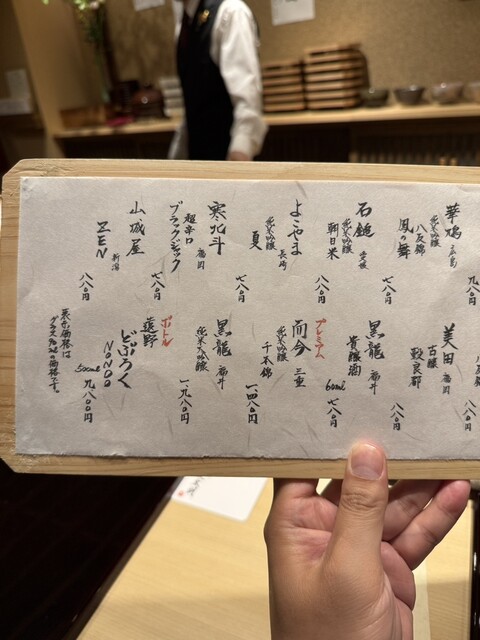 華鳩 広島
純米吟醸
八反錦
鳳の舞
九八〇円
石鎚 愛媛
純米吟醸
朝日米
七八〇円
よこやま 長崎
純米吟醸
夏
八八〇円
寒北斗 福岡
超辛口
ブラックジャック
七八〇円
山城屋 新潟
ZEN
七八〇円
八八〇円
美田 福岡
古醸
八八〇円
黒龍
貴醸酒
60ml 七八〇円
プレミアム
而今 三重
純米吟醸
千本錦
一、四八〇円
黒龍
純米大吟醸
一、九八〇円
ボトル
遊野
どぶろく
NONDO
500ml 九、八〇〇円
表示価格は
グラス90mlの価格です。